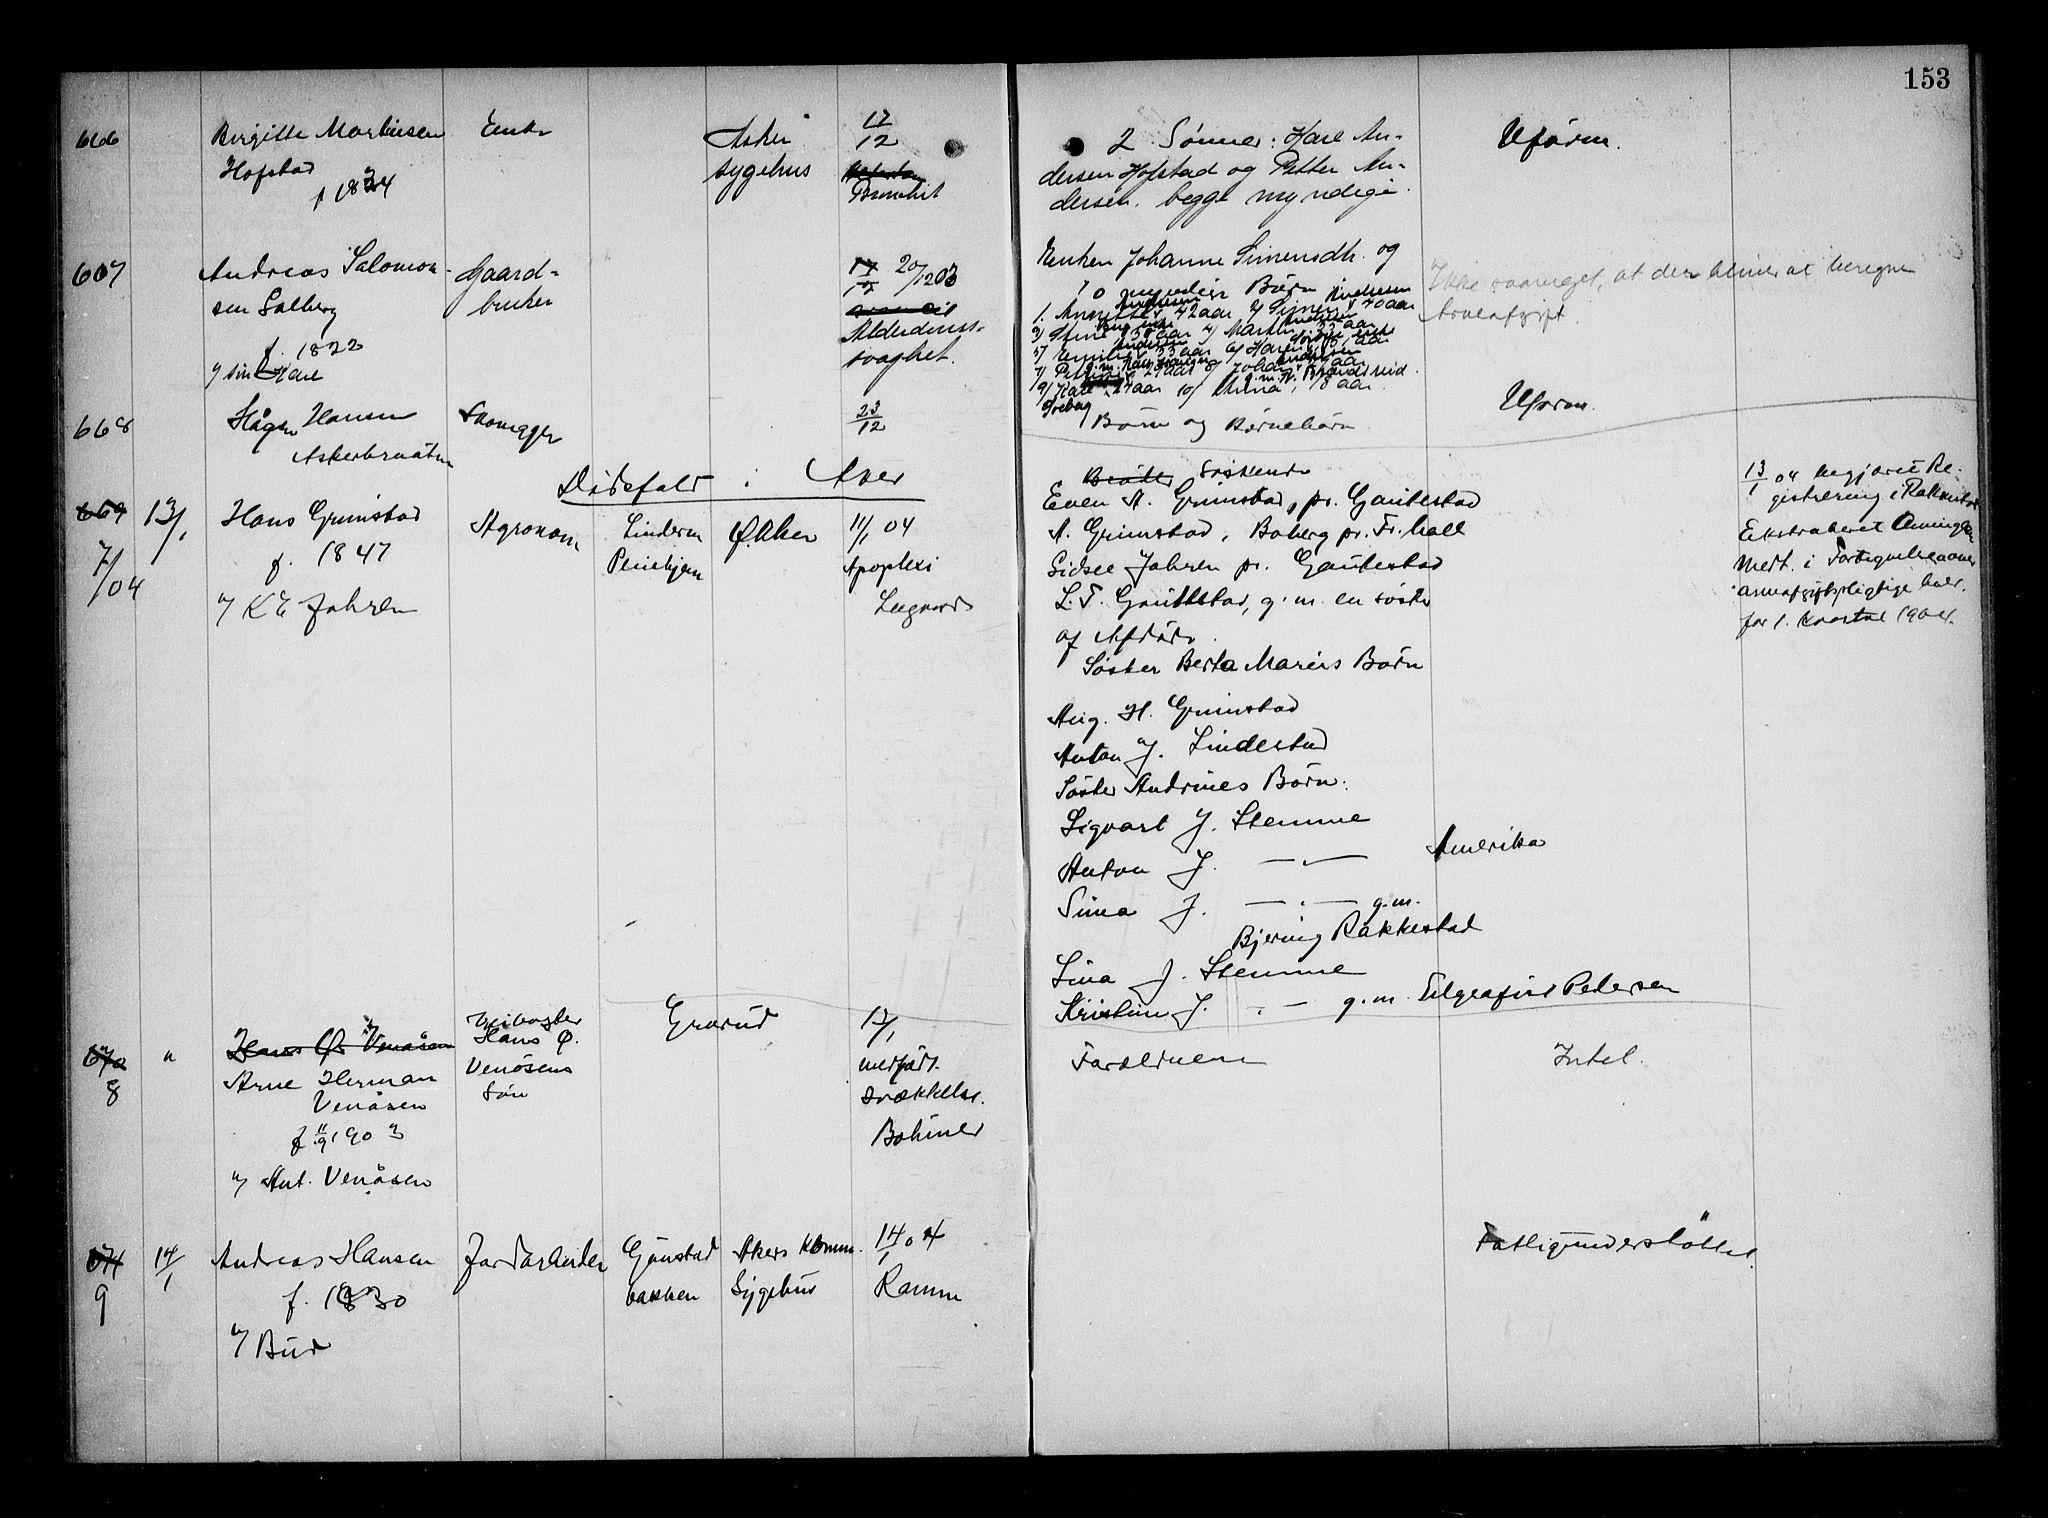 153
666
Birgitte Martinsen
Hofstad
f 1834
Enke
Asker
sygehus
17/12
Bronchit
2 Sønner: Karl An-
dersen Hofstad og Petter An-
dersen, begge myndige.
Uform.
667
Andreas Salomon-
sen Solberg
f. 1822
v/ søn Karl
Gaard-
bruker
20/12 03
Alderdoms-
svaghet.
Enken Johanne Simensdt. og
10 myndige Børn
1. Annette 42 aar 2/ Simen 40 aar
3/ Stine, 38 aar 4/ Martin 35 aar
5/ Emil 33 aar 6/ Karen 31 aar
7/ Petter 29 aar 8/ Johan
9/ Karl 24 aar 10/ Anna, 18 aar
Ikke saameget, at der bliver at beregne
Arveafgift.
668
Hågen Hansen
Askerbraaten
23/12
Børn og Børnebørn
Uform.
Dødsfald i Aker
669
7/04
13/1
Hans Grimstad
f. 1847
v/ K E Jahren
Agronom
Lindern
Pleiehjem
Ø. Aker
11/1 04
Apoplexi
Søskende
Even A. Grimstad, pr. Gautestad
A. Grimstad, Boberg pr. Fr.hall
Sidsel Jahren pr. Gautestad
L. T. Gautestad, g. m. en søster
af Afdøde.
Søster Berta Maries Børn
Aug. H. Grimstad
Anton J. Lindestad
Søster Andrines Børn.
Sigvart J. Stemme
Anton J. — " — Amerika
Sina J. — " — g.m.
Bjering Rakkestad
Lina J. Stemme
Kristine J. — " — g.m. Telgrafist Pedersen
13/1 04 begjæret Re-
gistrering i Rakkestad
Medt. i Fortegnelsen over
arveafgiftspligtige boer.
for 1. kvartal 1904.
670
8
"
Hans Ø. Venåsen
Arne Herman
Venåsen
f 11/9 1903
v/ Ant. Venåsen
Veivogter
Hans Ø.
Venåsens
Søn
Grorud
13/1
medfødt
svækkelse.
Bohmer
Forældrene
Intet.
671
9
14/1
Andreas Hansen
f. 1830
v/ Bud
Jordarbeider
Grinstad
bakken
Akers Komm.
Sygehus
14/1 04
Ramm
Fattigunderstøttet.